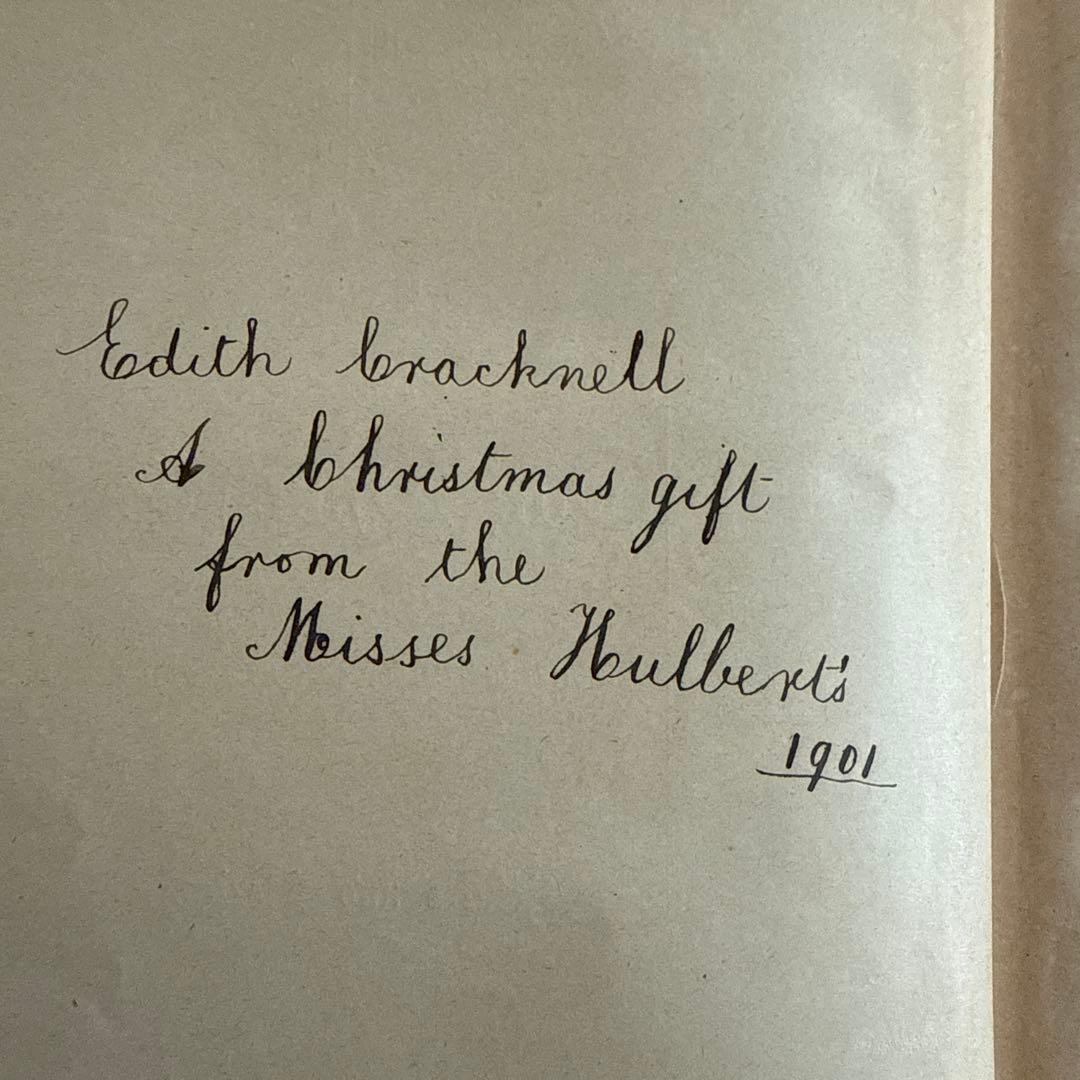 Edith Cracknell
A Christmas gift
from the
Misses Hulbert's
1901